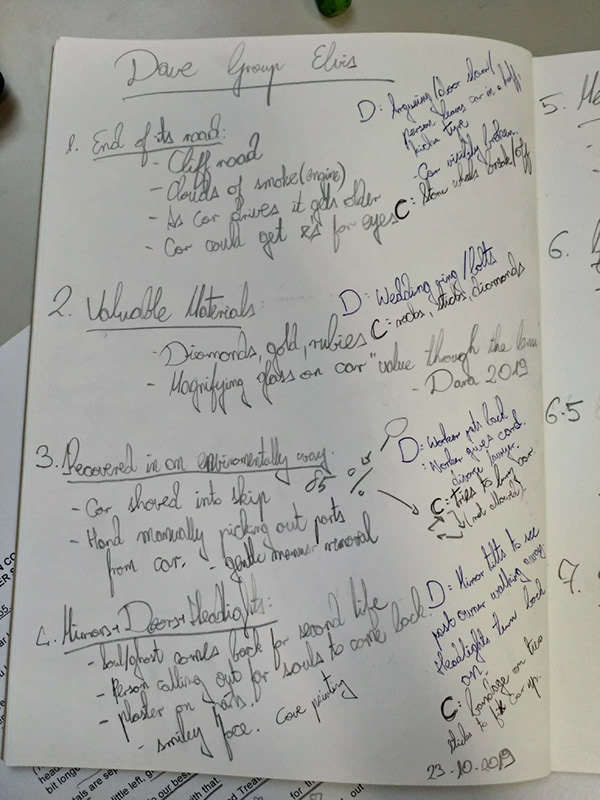 Dave Group Elvis
1. End of its road:
- Cliff road
- Clouds of smoke (engine)
- As car drives it gets older
- Car could get xs for eyes
D: Arguing/door slam/
Person leaves car in a huff
kicks tyre
- Car visibly broken.
C: Stone wheels break/off
2. Valuable Materials:
- Diamonds, gold, rubies
- Magnifying glass on car "value through the
- Dara 2019
D: Wedding ring/bolts
C: rocks, sticks, diamonds
3. Recovered in an enviromentally way.
- Car shoved into skip
- Hand manually picking out parts
from car. - gentle manner removal
85 %
D: Worker gets back
Worker gives cord.
C: tries to bury car.
(not allowed)
4. Mirrors + Doors + Headlights:
- Soul/ghost comes back for second life
- Person calling out for souls to come back.
- plaster on parts.
- smiley face. Cave painting
D: Mirror tilts to see
past owner walking away
Headlights turn back
on.
C: bandage on two
sticks to fix car up.
23-10-2019
5.
6.
6.5
7.